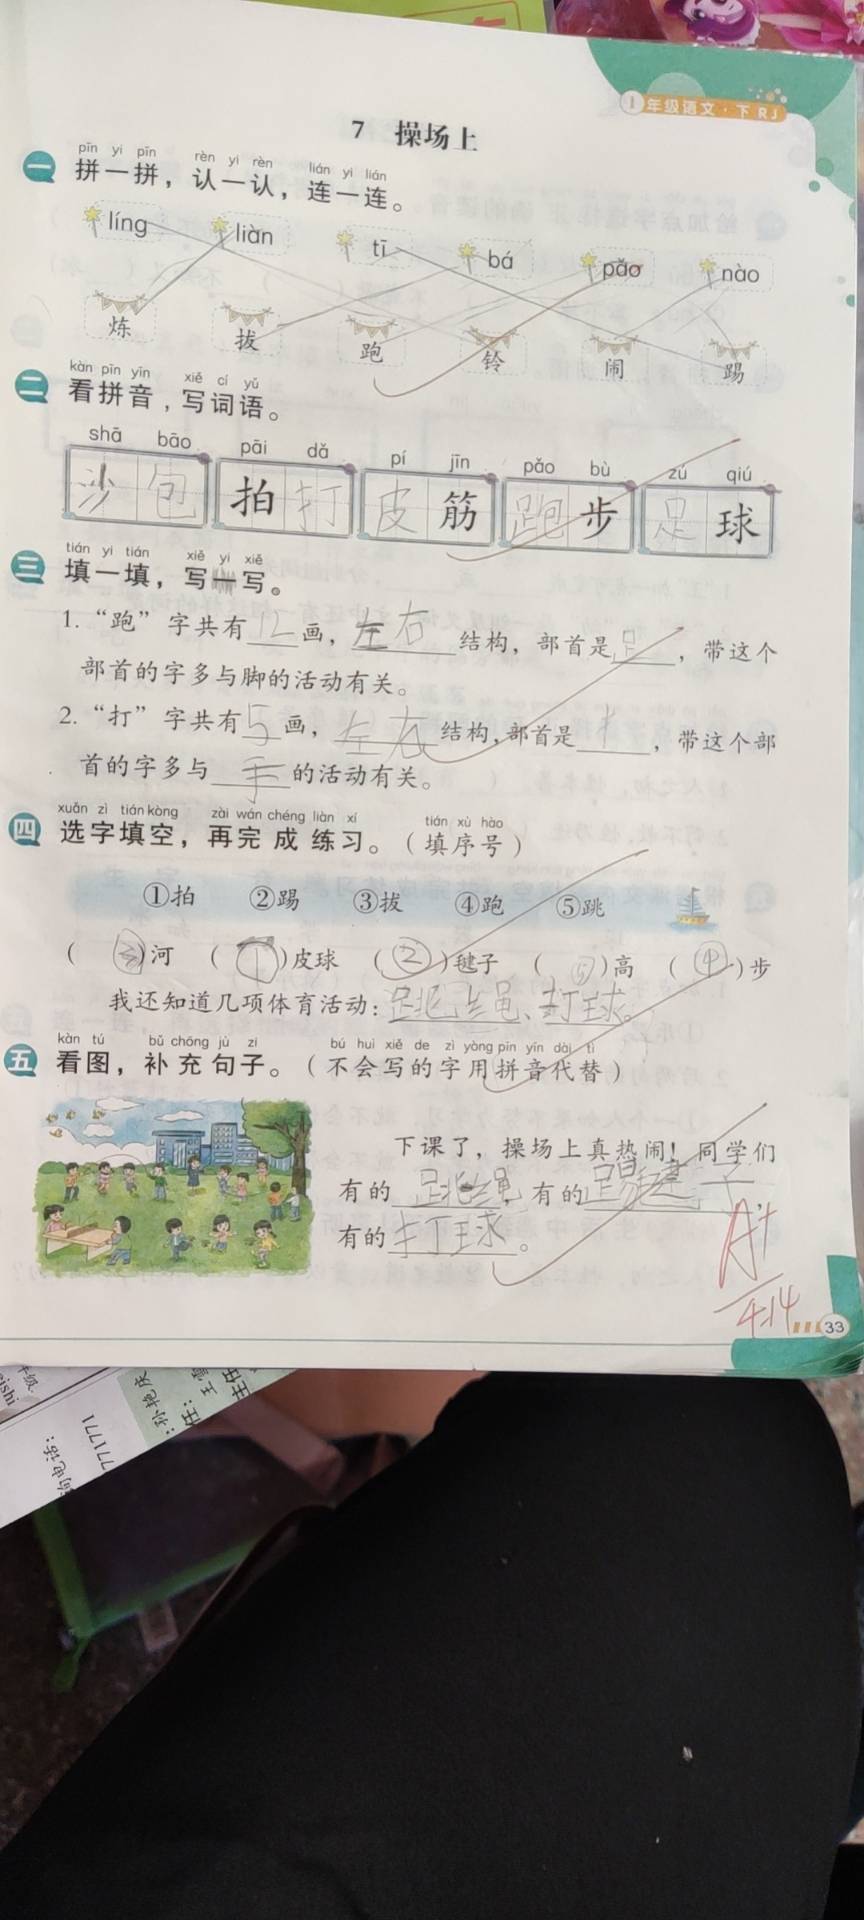 1年级语文·下 RJ
7 操场上
pīn yi pīn rèn yi rèn lián yi lián
一 拼一拼，认一认，连一连。
líng liàn tī bá pǎo nào
炼 拔 跑 铃 闹 踢
kàn pīn yīn xiě cí yǔ
二 看拼音，写词语。
shā bāo pāi dǎ pí jīn pǎo bù zú qiú
沙包 拍打 皮筋 跑步 足球
tián yi tián xiě yi xiě
三 填一填，写一写。
1.“跑”字共有12画，左右结构，部首是⻊，带这个
部首的字多与脚的活动有关。
2.“打”字共有5画，左右结构，部首是扌，带这个部
首的字多与手的活动有关。
xuǎn zì tián kòng zài wán chéng liàn xí tián xù hào
四 选字填空，再完成练习。（填序号）
①拍 ②踢 ③拔 ④跑 ⑤跳
（③）河 （①）皮球 （②）毽子 （⑤）高 （④）步
我还知道几项体育活动：跳绳、打球。
kàn tú bǔ chōng jù zi bú huì xiě de zì yòng pīn yīn dài tì
五 看图，补充句子。（不会写的字用拼音代替）
下课了，操场上真热闹！同学们
有的跳绳，有的踢毽子，
有的打球。
A+
4.14
33
771771